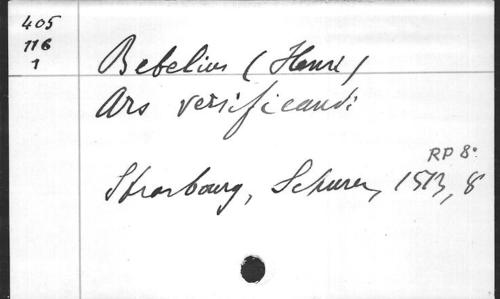 405
116
1
Bebelius (Henri)
Ars versificandi
RP 8°
Strasbourg, Schurer, 1513, 8